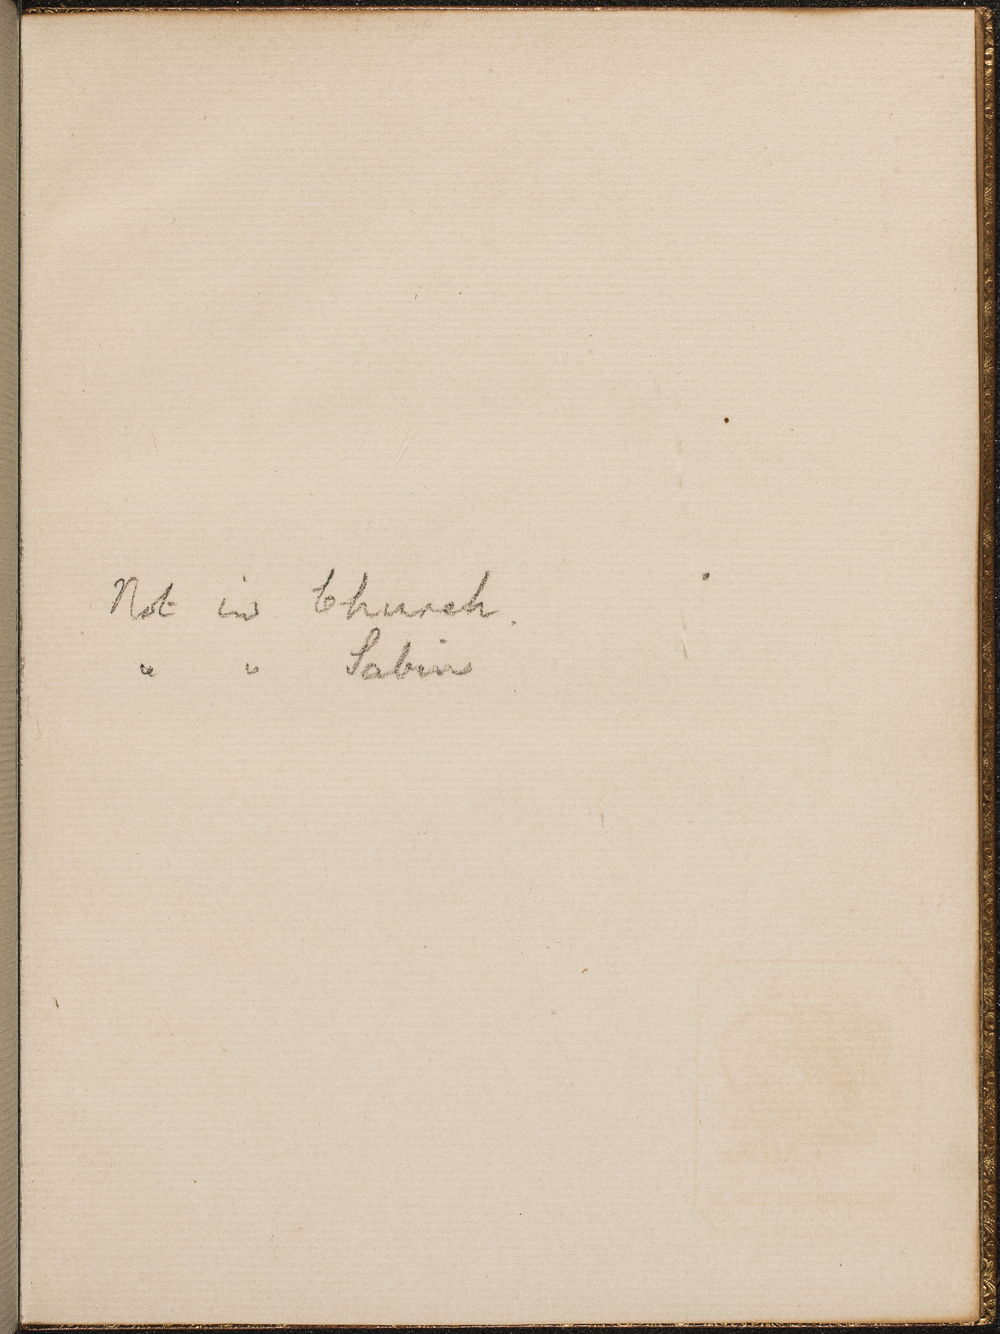 Not in Church.
" " Sabin